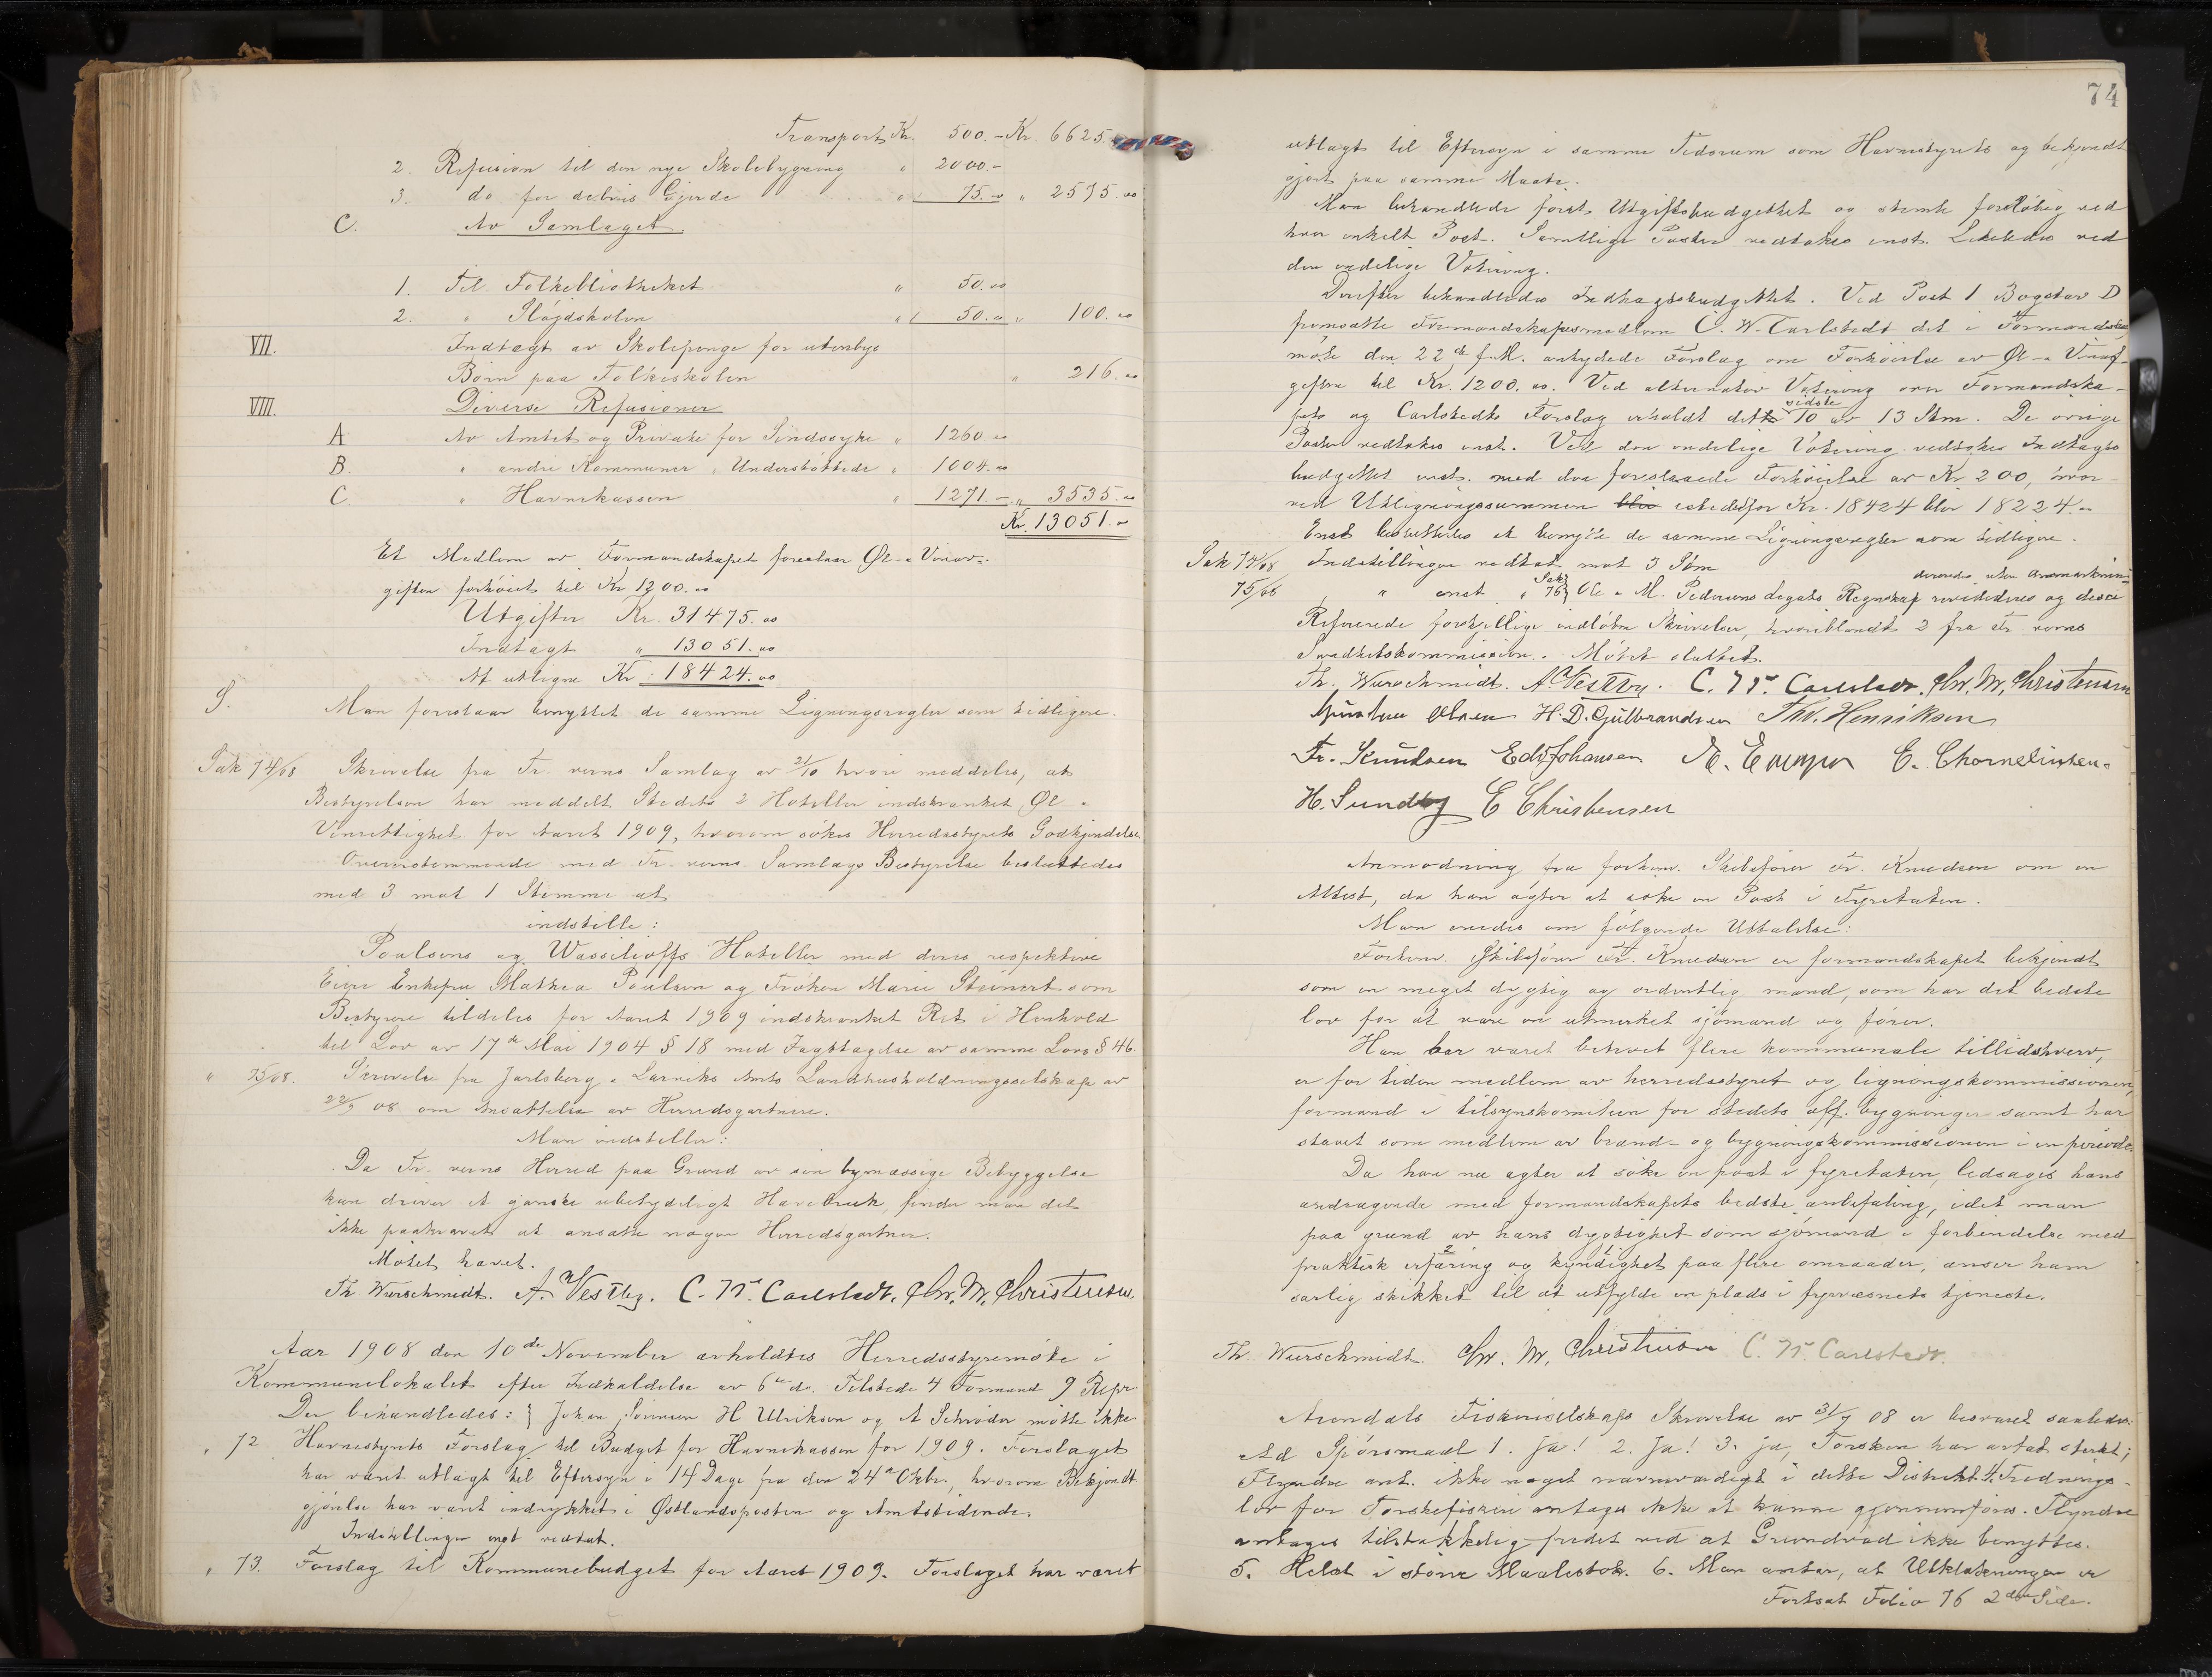 Transport Kr. 500.- Kr. 6625.
2. Refusion til den nye Skolebygning " 2000.-
3. do for delvis Gjerde " 75.00 " 2575.00
C. Av Samlaget.
1. Til Folkebibliotheket " 50.00
2. " Sløjdskolen " 50.00 " 100.00
VII. Indtægt av Skolepenge for utenbys
Børn paa Folkeskolen " 216.00
VIII. Diverse Refusioner
A Av Amtet og Private for Sindssyke " 1260.00
B. " andre Kommuner " Understøttede " 1004.00
C. " Havnekassen " 1271.- " 3535.00
Kr. 13051.00
Et Medlem av Formandskapet foreslaar Øl- & Vinav-
giften forhöiet til Kr 1200.00
Utgifter Kr. 31475.00
Indtægt " 13051.00
At utligne Kr. 18424.00
9. Man foreslaar benyttet de samme Ligningsregler som tidligere.
Sak 74/08 Skrivelse fra Fr. værns Samlag av 21/10 hvori meddeles, at
Bestyrelsen har meddelt Stedets 2 Hoteller indskrænket Øl- &
Vinrettighet for Aaret 1909, hvorom søkes Herredsstyrets Godkjendelse.
Overensstemmende med Fr. værns Samlags Bestyrelse besluttedes
med 3 mot 1 Stemme at
indstille:
Poulsens og Wassilioffs Hoteller med deres respektive
Eiere Enkefru Mathea Poulsen og Frøken Marie Steinert som
Bestyrere tildeles for Aaret 1909 indskrænket Ret i Henhold
til Lov av 17de Mai 1904 § 18 med Iagttagelse av samme Lovs § 46.
" 75/08. Skrivelse fra Jarlsberg & Larviks Amts Landhusholdningsselskap av
22/9 08 om Ansættelse av Herredsgartnere.
Man indstiller:
Da Fr. værns Herred paa Grund av sin bymæssige Bebyggelse
kun driver et ganske ubetydeligt Havebruk, finder man det
ikke paakrævet at ansætte nogen Herredsgartner.
Mötet hævet.
Th. Wurschmidt. A. Vestby. C. W. Carlstedt. Chr. M. Christensen.
Aar 1908 den 10de November avholdtes Herredsstyremøte i
Kommunelokalet efter Indkaldelse av 6te ds. Tilstede 4 Formænd 9 Repr.
Der behandledes: } Johan Sörensen H Ulriksen og A Schrøder møtte ikke
" 72 Havnestyrets Forslag til Budget for Havnekassen for 1909. Forslaget
har været utlagt til Eftersyn i 14 Dage fra den 24de Oktbr, hvorom Bekjendt-
gjørelse har været indrykket i Østlandsposten og Amtstidende.
Indstillingen enst vedtat.
" 73. Forslag til Kommunebudget for Aaret 1909. Forslaget har været
74
utlagt til Eftersyn i samme Tidsrum som Havnestyrets og bekjendt-
gjort paa samme Maate.
Man behandlede først Utgiftsbudgettet og stemte foreløbig ved
hver enkelt Post. Samtlige Poster vedtokes enst. Likeledes ved
den endelige Votering.
Derefter behandledes Indtægtsbudgettet. Ved Post 1 Bogstav D
fremsatte Formandskapsmedlem C. W. Carlstedt det i Formandsk.
møte den 22de f.M. antydede Forslag om Forhöielse av Øl- & Vinav-
giften til Kr. 1200.00. Ved alternativ Votering over Formandska-
pets og Carlstedts Forslag erholdt det sidste 10 av 13 Stm. De øvrige
Poster vedtokes enst. Ved den endelige Votering vedtokes Indtægts
budgettet enst. med den foreslaaede Forhöielse av Kr 200, hvor-
ved Utligningssummen blir istedetfor Kr. 18424 blir 18224.00
Enst besluttedes at benytte de samme Ligningsregler som tidligere.
Sak 74/08 Indstillingen vedtat mot 3 Stm
75/08 " enst. " Sak 76} Ole & M. Pedersens Legats Regnskap revideredes og deci
derendes uten Anmerkning
Refererede forskjellige indløbne Skrivelser, hvoriblandt 2 fra Fr. værns
Sundhetskommission. Møtet sluttet.
Th. Wurschmidt. A. Vestby. C. W. Carlstedt. Chr. M. Christensen
Olsen H. D. Gulbrandsen Thv. Henriksen
Fr. Knudsen Edv Johansen E. Chornelinsen.
H. Sundby E Christensen
Anmodning fra forhenv. Skibsfører Fr. Knudsen om en
Attest, da han agter at søke en Post i Fyretaten.
Man enedes om følgende Uttalelse:
Forhenv. Skibsfører Fr. Knudsen er formandskapet bekjendt
som en meget dygtig og ordentlig mand, som har det bedste
lov for at være en utmerket sjömand og förer.
Han har været betroet flere kommunale tillidshverv,
er for tiden medlem av herredsstyret og ligningskommissionen,
formand i tilsynskomiteen for stedets off. bygninger samt har
staaet som medlem av brand- og bygningskommissionen i en periode.
Da han nu agter at söke en post i fyretaten, ledsages hans
andragende med formandskapets bedste anbefaling, idet man
paa grund av hans dygtighet som sjömand i forbindelse med
praktisk erfaring og kyndighet paa flere omraader, anser ham
særlig skikket til at utfylde en plads i fyrvæsnets tjeneste.
Th. Wurschmidt. Chr. M. Christensen C. W. Carlstedt.
Arendals Fiskeriselskaps Skrivelse av 31/7 08 er besvaret saaledes:
Ad Spörsmaal 1. Ja! 2. Ja! 3. ja, Torsken har avtat sterkt;
Flyndre ant. ikke noget nævneværdigt i dette Distrikt. 4. Frednings-
lov for Torskefiskeri antages ikke at kunne gjennemføres. Flyndre
antages tilstrækkelig fredet ved at Grundvad ikke benyttes.
5. Helst i större Maalestok. 6. Man antar, at Utklækningen er
Fortsat Folio 76 2den Side.